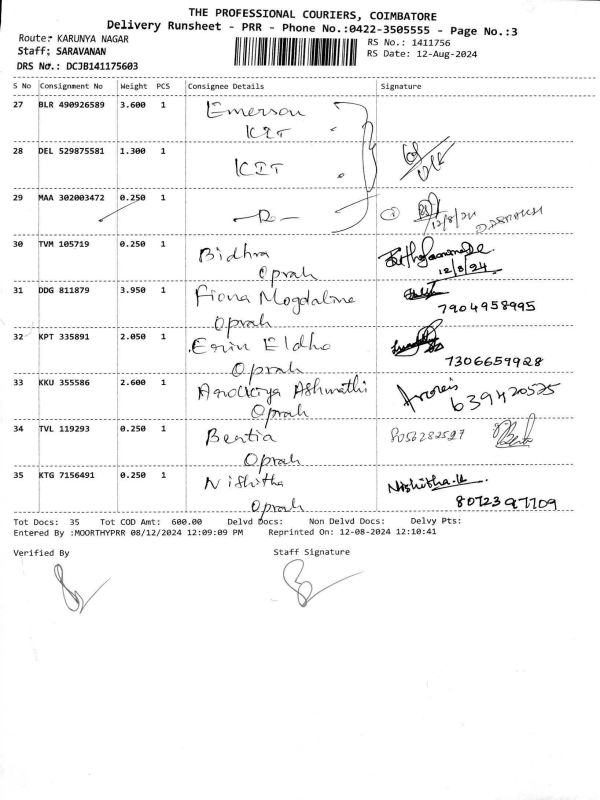 THE PROFESSIONAL COURIERS, COIMBATORE
Delivery Runsheet - PRR - Phone No.:0422-3505555 - Page No.:3
Route: KARUNYA NAGAR
RS No.: 1411756
Staff: SARAVANAN
RS Date: 12-Aug-2024
DRS No.: DCJB141175603
S No Consignment No Weight PCS Consignee Details Signature
27 BLR 490926589 3.600 1 Emerson
KIT
28 DEL 529875581 1.300 1 KIT
29 MAA 302003472 0.250 1 -Do-
12/8/24
30 TVM 105719 0.250 1 Bidhra
Oprah
12/8/24
31 DDG 811879 3.950 1 Fiona Mogdaline
Oprah
7904958995
32 KPT 335891 2.050 1 Erin Eldho
Oprah
7306659928
33 KKU 355586 2.600 1 Arockiya Ashwathi
Oprah
639420525
34 TVL 119293 0.250 1 Bentia 8056282597
Oprah
35 KTG 7156491 0.250 1 Nishitha Nishitha.K
Oprah
8072397709
Tot Docs: 35 Tot COD Amt: 600.00 Delvd Docs: Non Delvd Docs: Delvy Pts:
Entered By :MOORTHYPRR 08/12/2024 12:09:09 PM Reprinted On: 12-08-2024 12:10:41
Verified By Staff Signature